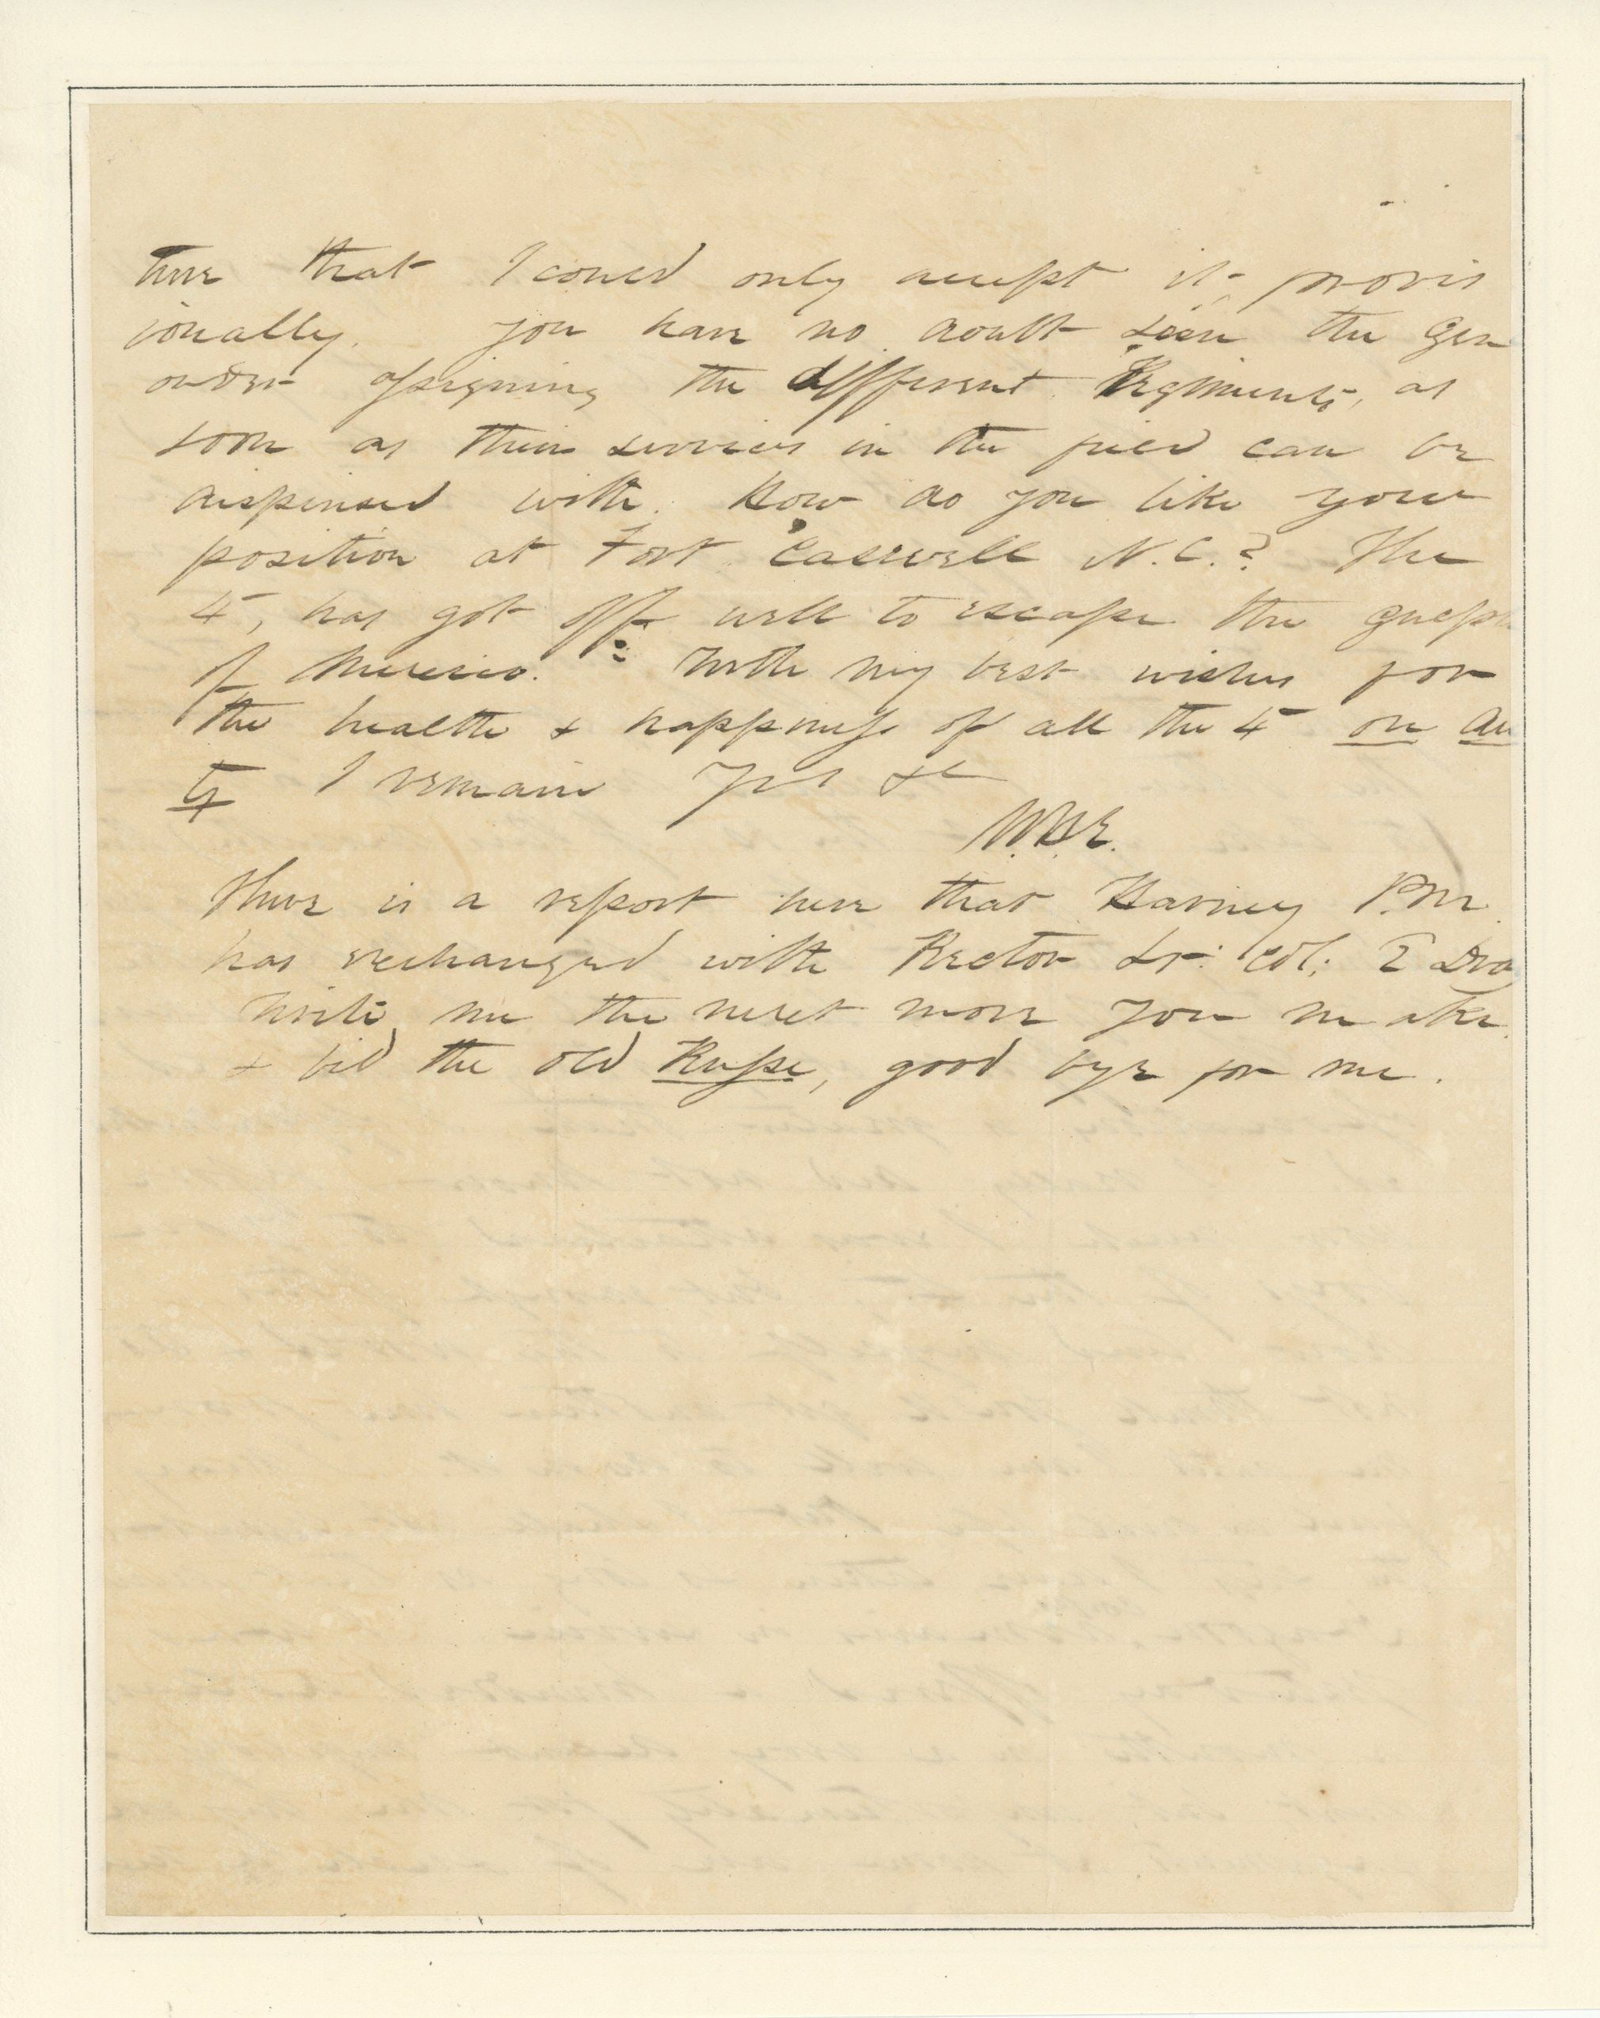 time that I could only accept it provis
ionally. You have no doubt seen the Gen
order assigning the different Regiments, as
soon as their services in the field can be
dispensed with. How do you like your
position at Fort Caswell N.C.? The
4, has got off well to escape the
of Mexico. With my best wishes for
the health & happiness of all the 4 on du
ty I remain Yrs &c
W.G.E.
There is a report here that Harney P.M.
has exchanged with Rector Lt: Col; 2 Dra
Write me the next move you make
& bid the old, good bye for me.